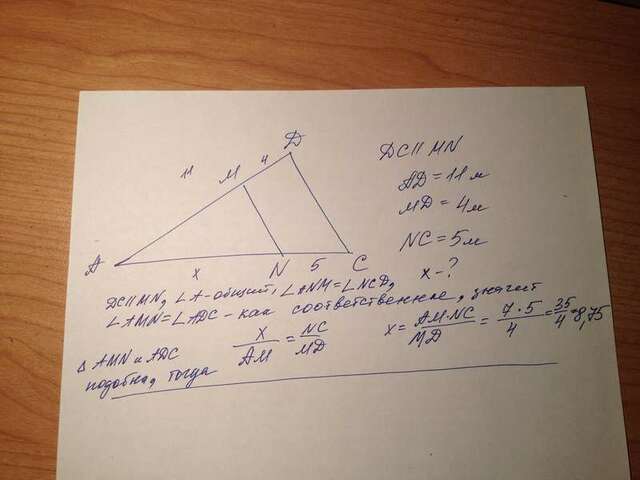 D
11
M
4
A
x
N
5
C
DC || MN
AD = 11 м
MD = 4 м
NC = 5 м
x - ?
DC || MN, ∠A - общий, ∠ANM = ∠NCD,
∠AMN = ∠ADC - как соответственные, значит
△ AMN и ADC
подобны, тогда
x/AM = NC/MD
x = AM·NC/MD = 7·5/4 = 35/4 = 8,75